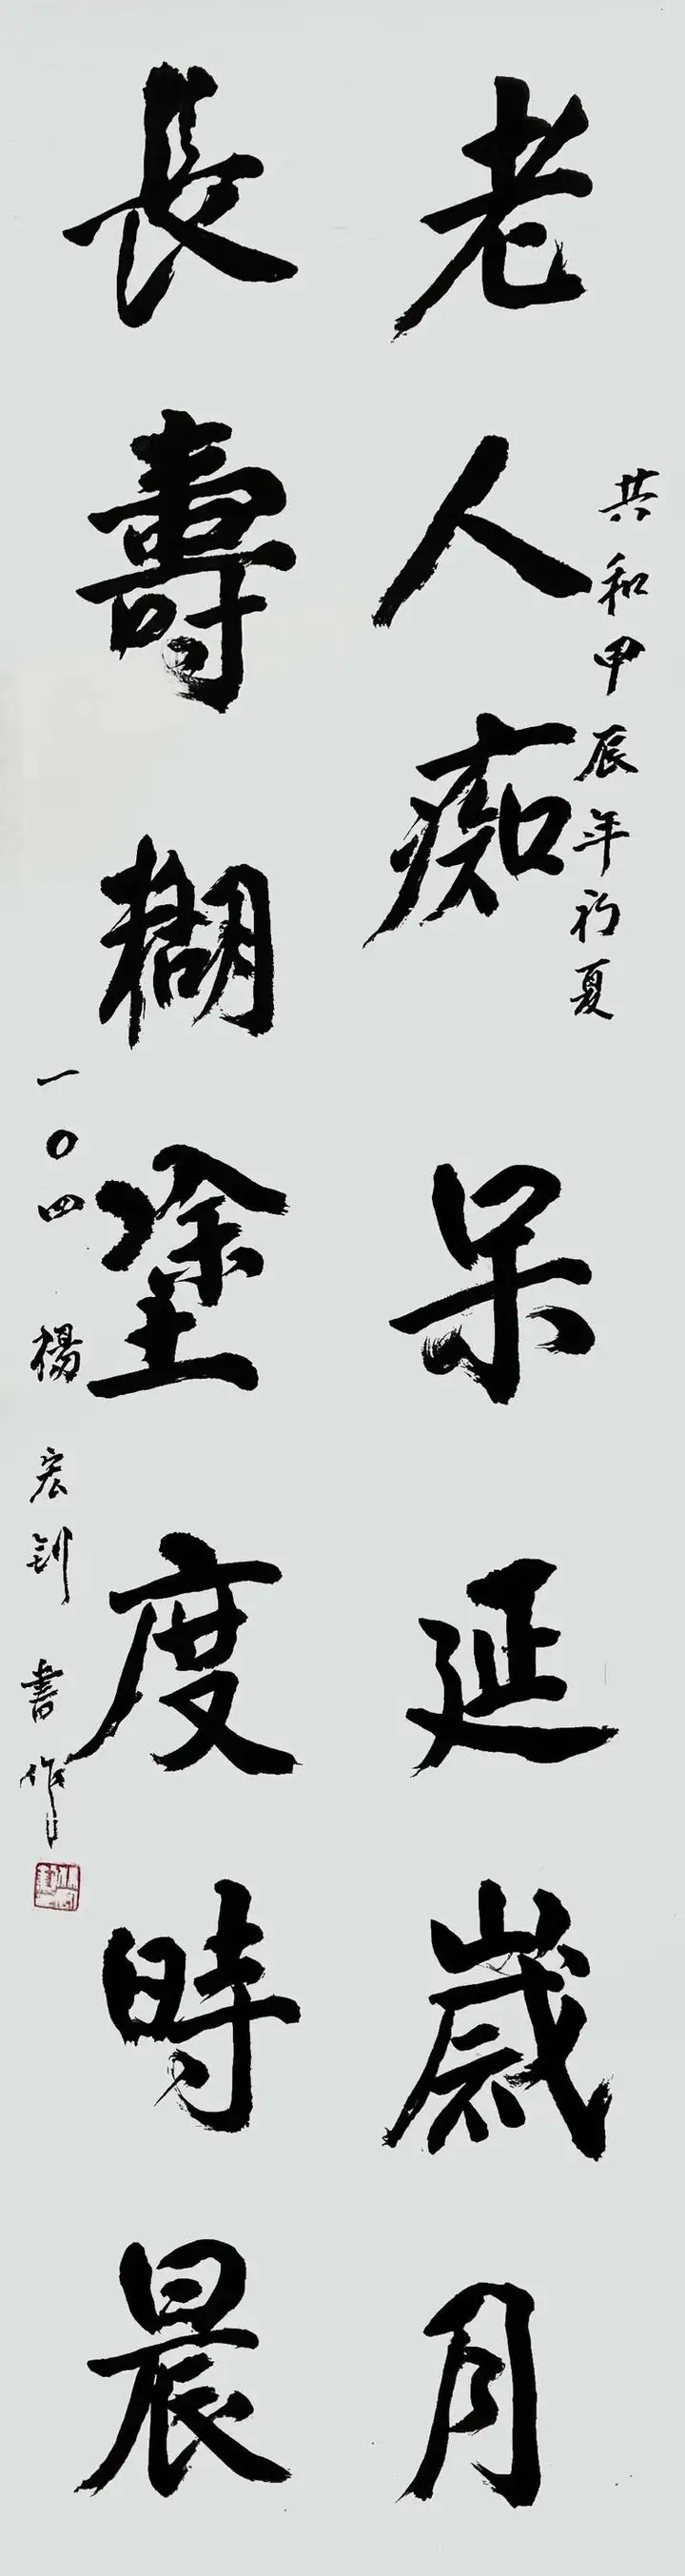 共和甲辰年初夏
老人痴呆延歲月
長壽糊塗度時晨
一〇四 楊宏釗書作